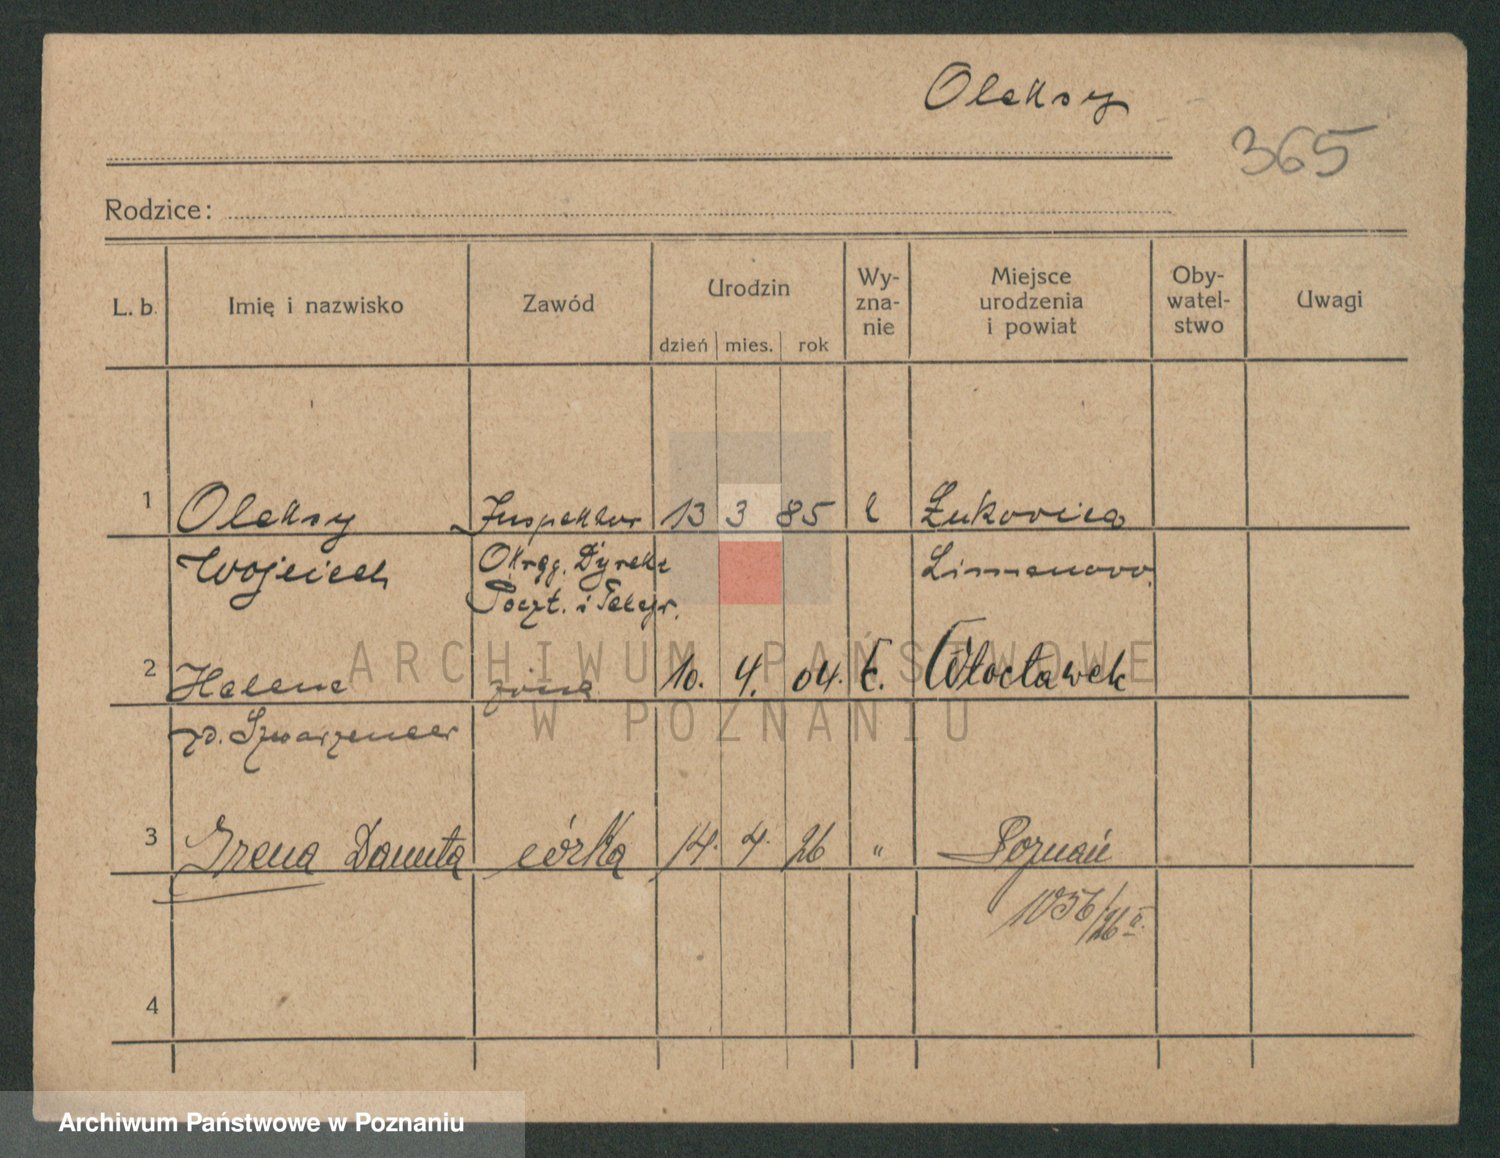 Oleksy
365
Rodzice:
L. b. Imię i nazwisko Zawód Urodzin Wy-zna-nie Miejsce urodzenia i powiat Oby-watel-stwo Uwagi
dzień mies. rok
1 Oleksy Inspektor 13 3 85 Łukovica
Wojciech Okręg. Dyrekc Limanowa
Poczt. i Telegr.
2 Helena żona 10. 4. 04. Włocławek
3 Irena Danuta córka 14. 4. 26 " Poznań
1056/26 II.
4
ARCHIWUM PAŃSTWOWE
W POZNANIU
Archiwum Państwowe w Poznaniu